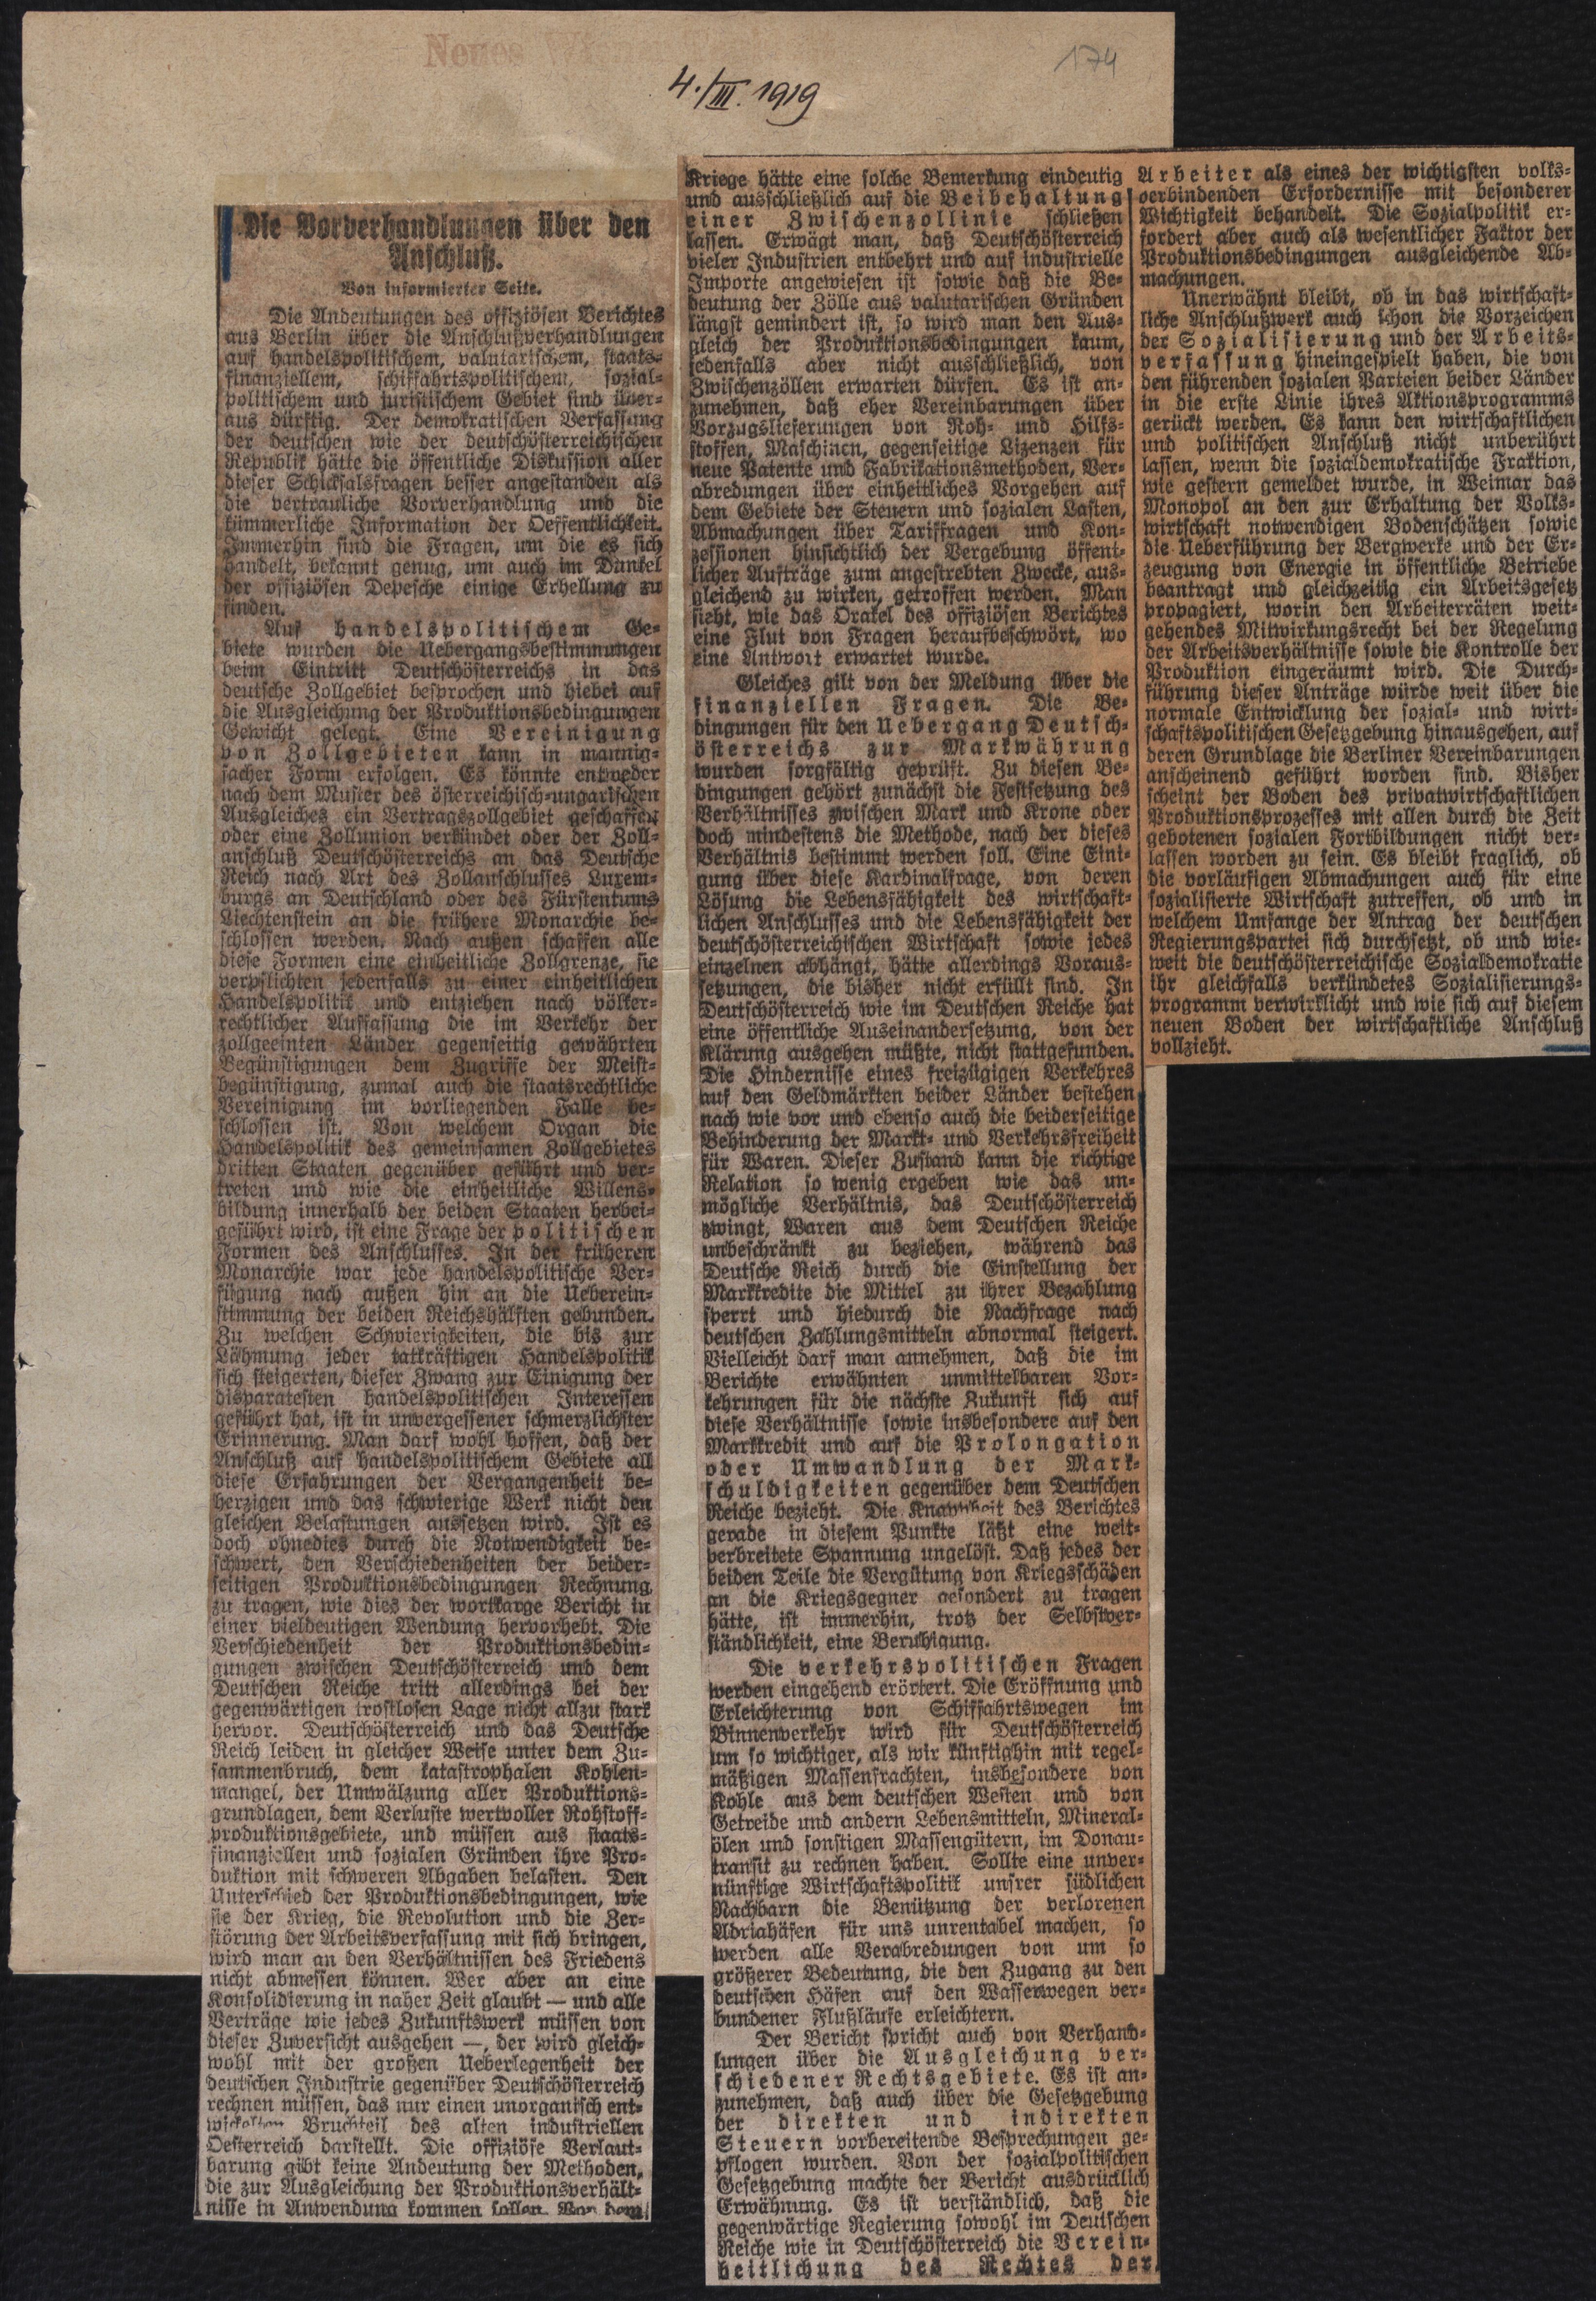 Neues Wiener
174
4./III. 1919
Die Vorverhandlungen über den
Anschluß.
Von informierter Seite.
Die Andeutungen des offiziösen Berichtes
aus Berlin über die Anschlußverhandlungen
auf handelspolitischem, valutarischem, staats-
finanziellem, schiffahrtspolitischem, sozial-
politischem und juristischem Gebiet sind über-
aus dürftig. Der demokratischen Verfassung
der deutschen wie der deutschösterreichischen
Republik hätte die öffentliche Diskussion aller
dieser Schicksalsfragen besser angestanden als
die vertrauliche Vorverhandlung und die
kümmerliche Information der Oeffentlichkeit.
Immerhin sind die Fragen, um die es sich
handelt, bekannt genug, um auch im Dunkel
der offiziösen Depesche einige Erhellung zu
finden.
Auf handelspolitischem Ge-
biete wurden die Uebergangsbestimmungen
beim Eintritt Deutschösterreichs in das
deutsche Zollgebiet besprochen und hiebei auf
die Ausgleichung der Produktionsbedingungen
Gewicht gelegt. Eine Vereinigung
von Zollgebieten kann in mannig-
facher Form erfolgen. Es könnte entweder
nach dem Muster des österreichisch-ungarischen
Ausgleiches ein Vertragszollgebiet geschaffen
oder eine Zollunion verkündet oder der Zoll-
anschluß Deutschösterreichs an das Deutsche
Reich nach Art des Zollanschlusses Luxem-
burgs an Deutschland oder des Fürstentums
Liechtenstein an die frühere Monarchie be-
schlossen werden. Nach außen schaffen alle
diese Formen eine einheitliche Zollgrenze, sie
verpflichten jedenfalls zu einer einheitlichen
Handelspolitik und entziehen nach völker-
rechtlicher Auffassung die im Verkehr der
zollgeeinten Länder gegenseitig gewährten
Begünstigungen dem Zugriffe der Meist-
begünstigung, zumal auch die staatsrechtliche
Vereinigung im vorliegenden Falle be-
schlossen ist. Von welchem Organ die
Handelspolitik des gemeinsamen Zollgebietes
dritten Staaten gegenüber geführt und ver-
treten und wie die einheitliche Willens-
bildung innerhalb der beiden Staaten herbei-
geführt wird, ist eine Frage der politischen
Formen des Anschlusses. In der früheren
Monarchie war jede handelspolitische Ver-
fügung nach außen hin an die Ueberein-
stimmung der beiden Reichshälften gebunden.
Zu welchen Schwierigkeiten, die bis zur
Lähmung jeder tatkräftigen Handelspolitik
sich steigerten, dieser Zwang zur Einigung der
disparatesten handelspolitischen Interessen
geführt hat, ist in unvergessener schmerzlichster
Erinnerung. Man darf wohl hoffen, daß der
Anschluß auf handelspolitischem Gebiete all
diese Erfahrungen der Vergangenheit be-
herzigen und das schwierige Werk nicht den
gleichen Belastungen aussetzen wird. Ist es
doch ohnedies durch die Notwendigkeit be-
schwert, den Verschiedenheiten der beider-
seitigen Produktionsbedingungen Rechnung
zu tragen, wie dies der wortkarge Bericht in
einer vieldeutigen Wendung hervorhebt. Die
Verschiedenheit der Produktionsbedin-
gungen zwischen Deutschösterreich und dem
Deutschen Reiche tritt allerdings bei der
gegenwärtigen trostlosen Lage nicht allzu stark
hervor. Deutschösterreich und das Deutsche
Reich leiden in gleicher Weise unter dem Zu-
sammenbruch, dem katastrophalen Kohlen-
mangel, der Umwälzung aller Produktions-
grundlagen, dem Verluste wertvoller Rohstoff-
produktionsgebiete, und müssen aus staats-
finanziellen und sozialen Gründen ihre Pro-
duktion mit schweren Abgaben belasten. Den
Unterschied der Produktionsbedingungen, wie
sie der Krieg, die Revolution und die Zer-
störung der Arbeitsverfassung mit sich bringen,
wird man an den Verhältnissen des Friedens
nicht abmessen können. Wer aber an eine
Konsolidierung in naher Zeit glaubt — und alle
Verträge wie jedes Zukunftswerk müssen von
dieser Zuversicht ausgehen —, der wird gleich-
wohl mit der großen Ueberlegenheit der
deutschen Industrie gegenüber Deutschösterreich
rechnen müssen, das nur einen unorganisch ent-
wickelten Bruchteil des alten industriellen
Oesterreich darstellt. Die offiziöse Verlaut-
barung gibt keine Andeutung der Methoden,
die zur Ausgleichung der Produktionsverhält-
nisse in Anwendung kommen sollen. Vor dem
Kriege hätte eine solche Bemerkung eindeutig
und ausschließlich auf die Beibehaltung
einer Zwischenzollinie schließen
lassen. Erwägt man, daß Deutschösterreich
vieler Industrien entbehrt und auf industrielle
Importe angewiesen ist sowie daß die Be-
deutung der Zölle aus valutarischen Gründen
längst gemindert ist, so wird man den Aus-
gleich der Produktionsbedingungen kaum,
jedenfalls aber nicht ausschließlich, von
Zwischenzöllen erwarten dürfen. Es ist an-
zunehmen, daß eher Vereinbarungen über
Vorzugslieferungen von Roh- und Hilfs-
stoffen, Maschinen, gegenseitige Lizenzen für
neue Patente und Fabrikationsmethoden, Ver-
abredungen über einheitliches Vorgehen auf
dem Gebiete der Steuern und sozialen Lasten,
Abmachungen über Tariffragen und Kon-
zessionen hinsichtlich der Vergebung öffent-
licher Aufträge zum angestrebten Zwecke, aus-
gleichend zu wirken, getroffen werden. Man
sieht, wie das Orakel des offiziösen Berichtes
eine Flut von Fragen heraufbeschwört, wo
eine Antwort erwartet wurde.
Gleiches gilt von der Meldung über die
finanziellen Fragen. Die Be-
dingungen für den Uebergang Deutsch-
österreichs zur Markwährung
wurden sorgfältig geprüft. Zu diesen Be-
dingungen gehört zunächst die Festsetzung des
Verhältnisses zwischen Mark und Krone oder
doch mindestens die Methode, nach der dieses
Verhältnis bestimmt werden soll. Eine Eini-
gung über diese Kardinalfrage, von deren
Lösung die Lebensfähigkeit des wirtschaft-
lichen Anschlusses und die Lebensfähigkeit der
deutschösterreichischen Wirtschaft sowie jedes
einzelnen abhängt, hätte allerdings Voraus-
setzungen, die bisher nicht erfüllt sind. In
Deutschösterreich wie im Deutschen Reiche hat
eine öffentliche Auseinandersetzung, von der
Klärung ausgehen müßte, nicht stattgefunden.
Die Hindernisse eines freizügigen Verkehres
auf den Geldmärkten beider Länder bestehen
nach wie vor und ebenso auch die beiderseitige
Behinderung der Markt- und Verkehrsfreiheit
für Waren. Dieser Zustand kann die richtige
Relation so wenig ergeben wie das un-
mögliche Verhältnis, das Deutschösterreich
zwingt, Waren aus dem Deutschen Reiche
unbeschränkt zu beziehen, während das
Deutsche Reich durch die Einstellung der
Markkredite die Mittel zu ihrer Bezahlung
sperrt und hiedurch die Nachfrage nach
deutschen Zahlungsmitteln abnormal steigert.
Vielleicht darf man annehmen, daß die im
Berichte erwähnten unmittelbaren Vor-
kehrungen für die nächste Zukunft sich auf
diese Verhältnisse sowie insbesondere auf den
Markkredit und auf die Prolongation
oder Umwandlung der Mark-
schuldigkeiten gegenüber dem Deutschen
Reiche bezieht. Die Knappheit des Berichtes
gerade in diesem Punkte läßt eine weit-
verbreitete Spannung ungelöst. Daß jedes der
beiden Teile die Vergütung von Kriegsschäden
an die Kriegsgegner gesondert zu tragen
hätte, ist immerhin, trotz der Selbstver-
ständlichkeit, eine Beruhigung.
Die verkehrspolitischen Fragen
werden eingehend erörtert. Die Eröffnung und
Erleichterung von Schiffahrtswegen im
Binnenverkehr wird für Deutschösterreich
um so wichtiger, als wir künftighin mit regel-
mäßigen Massenfrachten, insbesondere von
Kohle aus dem deutschen Westen und von
Getreide und andern Lebensmitteln, Mineral-
ölen und sonstigen Massengütern, im Donau-
transit zu rechnen haben. Sollte eine unver-
nünftige Wirtschaftspolitik unsrer südlichen
Nachbarn die Benützung der verlorenen
Adriahäfen für uns unrentabel machen, so
werden alle Verabredungen von um so
größerer Bedeutung, die den Zugang zu den
deutschen Häfen auf den Wasserwegen ver-
bundener Flußläufe erleichtern.
Der Bericht spricht auch von Verhand-
lungen über die Ausgleichung ver-
schiedener Rechtsgebiete. Es ist an-
zunehmen, daß auch über die Gesetzgebung
der direkten und indirekten
Steuern vorbereitende Besprechungen ge-
pflogen wurden. Von der sozialpolitischen
Gesetzgebung machte der Bericht ausdrücklich
Erwähnung. Es ist verständlich, daß die
gegenwärtige Regierung sowohl im Deutschen
Reiche wie in Deutschösterreich die Verein-
heitlichung des Rechtes der
Arbeiter als eines der wichtigsten volks-
verbindenden Erfordernisse mit besonderer
Wichtigkeit behandelt. Die Sozialpolitik er-
fordert aber auch als wesentlicher Faktor der
Produktionsbedingungen ausgleichende Ab-
machungen.
Unerwähnt bleibt, ob in das wirtschaft-
liche Anschlußwerk auch schon die Vorzeichen
der Sozialisierung und der Arbeits-
verfassung hineingespielt haben, die von
den führenden sozialen Parteien beider Länder
in die erste Linie ihres Aktionsprogramms
gerückt werden. Es kann den wirtschaftlichen
und politischen Anschluß nicht unberührt
lassen, wenn die sozialdemokratische Fraktion,
wie gestern gemeldet wurde, in Weimar das
Monopol an den zur Erhaltung der Volks-
wirtschaft notwendigen Bodenschätzen sowie
die Ueberführung der Bergwerke und der Er-
zeugung von Energie in öffentliche Betriebe
beantragt und gleichzeitig ein Arbeitsgesetz
propagiert, worin den Arbeiterräten weit-
gehendes Mitwirkungsrecht bei der Regelung
der Arbeitsverhältnisse sowie die Kontrolle der
Produktion eingeräumt wird. Die Durch-
führung dieser Anträge würde weit über die
normale Entwicklung der sozial- und wirt-
schaftspolitischen Gesetzgebung hinausgehen, auf
deren Grundlage die Berliner Vereinbarungen
anscheinend geführt worden sind. Bisher
scheint der Boden des privatwirtschaftlichen
Produktionsprozesses mit allen durch die Zeit
gebotenen sozialen Fortbildungen nicht ver-
lassen worden zu sein. Es bleibt fraglich, ob
die vorläufigen Abmachungen auch für eine
sozialisierte Wirtschaft zutreffen, ob und in
welchem Umfange der Antrag der deutschen
Regierungspartei sich durchsetzt, ob und wie-
weit die deutschösterreichische Sozialdemokratie
ihr gleichfalls verkündetes Sozialisierungs-
programm verwirklicht und wie sich auf diesem
neuen Boden der wirtschaftliche Anschluß
vollzieht.